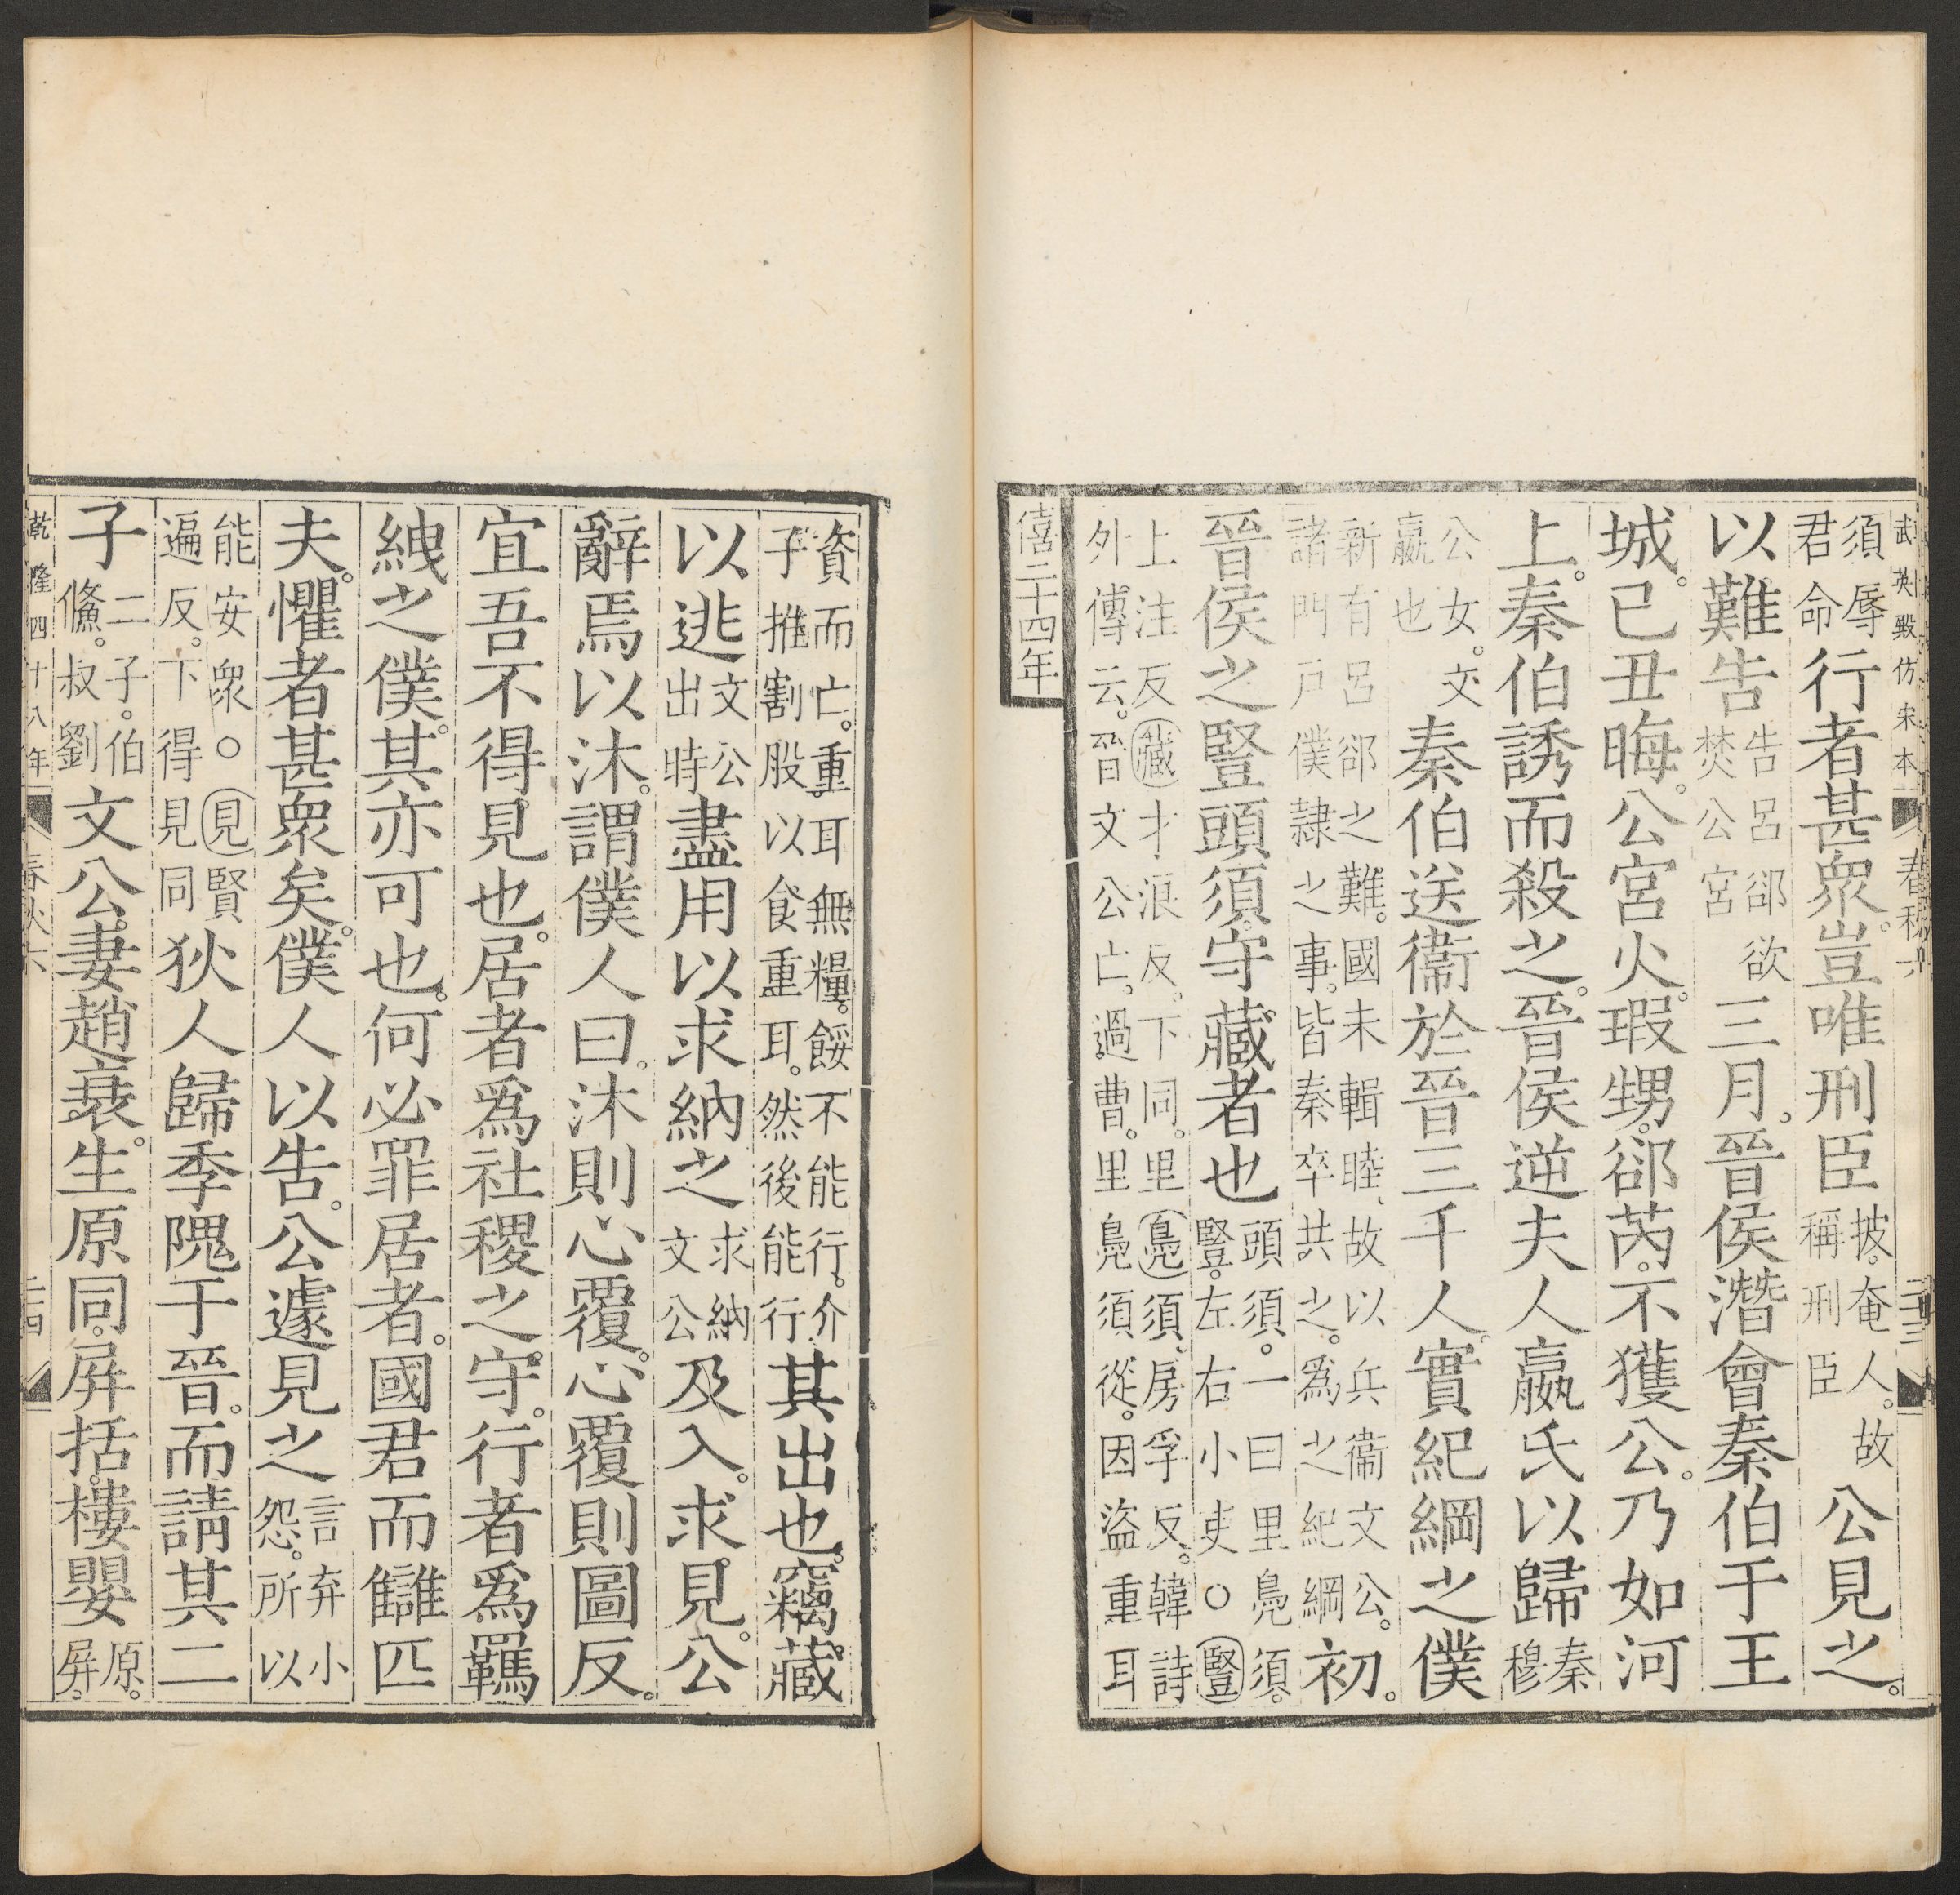 武英殿仿宋本
春秋六
二十三
須辱君命行者甚衆。豈唯刑臣披。奄人。故稱刑臣公見之。
以難告告呂郤欲焚公宮三月。晉侯潛會秦伯于王
城。己丑晦。公宮火。瑕甥。郤芮。不獲公。乃如河
上。秦伯誘而殺之。晉侯逆夫人嬴氏以歸秦穆
公女。文嬴也秦伯送衞於晉三千人。實紀綱之僕
新有呂郤之難。國未輯睦、故以兵衞文公。諸門戶僕隸之事。皆秦卒共之。爲之紀綱初。
晉侯之豎頭須。守藏者也頭須。一曰里鳧須。豎。左右小吏○豎
上注反藏才浪反。下同。里鳧須、房孚反。韓詩外傳云。晉文公亡。過曹。里鳧須從。因盜重耳
僖二十四年
資而亡。重耳無糧。餒不能行。介子推割股以食重耳。然後能行其出也。竊藏
以逃文公出時盡用以求納之求納文公及入。求見。公
辭焉以沐。謂僕人曰。沐則心覆。心覆則圖反。
宜吾不得見也。居者爲社稷之守。行者爲羈
絏之僕。其亦可也。何必罪居者。國君而讎匹
夫。懼者甚衆矣。僕人以告。公遽見之言弃小怨。所以
能安衆○見賢遍反。下得見同狄人歸季隗于晉。而請其二
子二子。伯鯈。叔劉文公。妻趙衰。生原同。屏括。樓嬰原。屏。
乾隆四十八年
春秋六
二十四